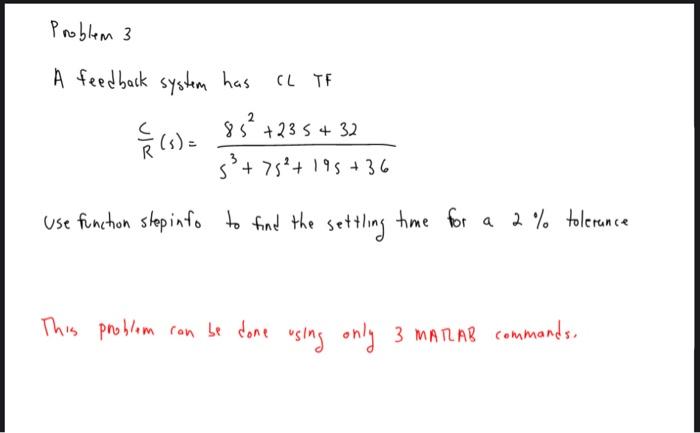 Problem 3
A feedback system has CL TF
C/R (s) = 8s² + 23s + 32 / s³ + 7s² + 19s + 36
Use function stepinfo to find the settling time for a 2% tolerance
This problem can be done using only 3 MATLAB commands.